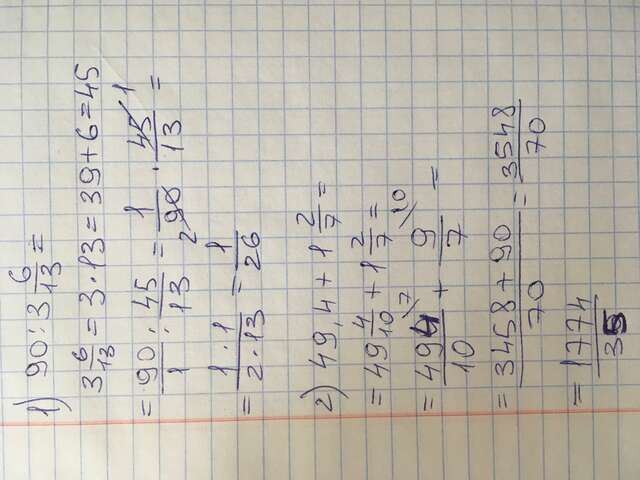 1) 90 : 3 6/13 =
3 6/13 = 3·13 = 39 + 6 = 45
= 90/1 : 45/13 = 1/90 2 · 45/13 1 =
= 1·1/2·13 = 1/26
2) 49,4 + 1 2/7 =
= 49 4/10 + 1 2/7 =
= 494/10 7 + 9/7 10 =
= 3458 + 90/70 = 3548/70
= 1774/35